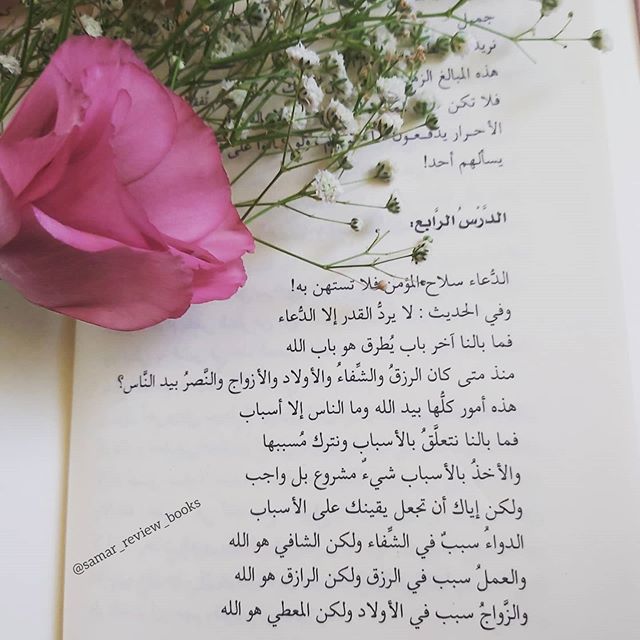 جميل
تريد
هذه المبالغ
فلا تكن
الأحرار يدفعون
يسألهم أحد!
الدَّرسُ الرَّابع:
الدُّعاء سلاح المؤمن فلا تستهن به!
وفي الحديث : لا يردُّ القدر إلا الدُّعاء
فما بالنا آخر باب يُطرق هو باب الله
منذ متى كان الرزقُ والشِّفاءُ والأولاد والأزواج والنَّصرُ بيد النَّاس؟
هذه أمور كلُّها بيد الله وما الناس إلا أسباب
فما بالنا نتعلَّقُ بالأسباب ونترك مُسببها
والأخذُ بالأسباب شيءٌ مشروع بل واجب
ولكن إياك أن تجعل يقينك على الأسباب
الدواءُ سببٌ في الشِّفاء ولكن الشافي هو الله
والعملُ سبب في الرزق ولكن الرازق هو الله
والزَّواجُ سبب في الأولاد ولكن المعطي هو الله
@samar_review_books